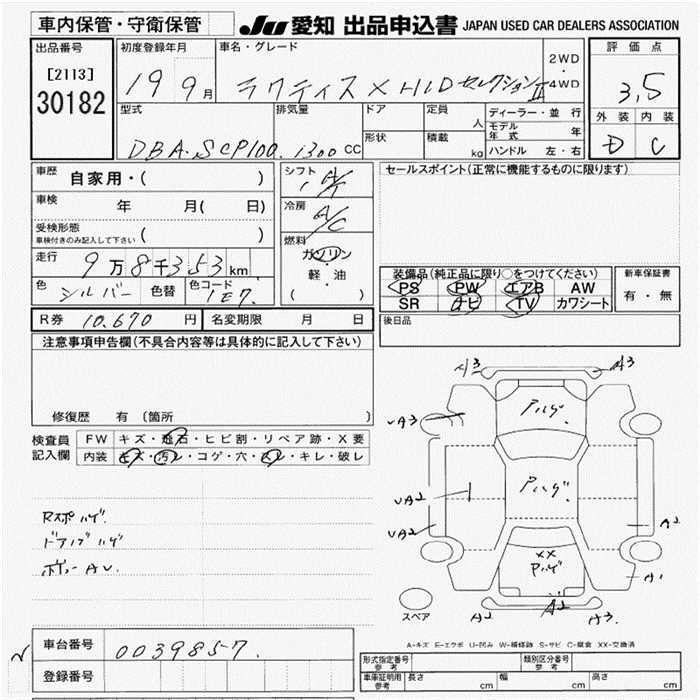 車内保管・守衛保管
JU 愛知 出品申込書 JAPAN USED CAR DEALERS ASSOCIATION
出品番号
[2113]
30182
初度登録年月
19 9月
車名・グレード
ラクティス X HID セレクションII
2WD
・
4WD
評価点
3,5
外装 内装
D C
型式
DBA.SCP100.
排気量
1300 CC
ドア
形状
定員
人
積載
kg
ディーラー・並行
モデル年式 年
ハンドル 左・右
車歴 自家用・( )
車検 年 月( 日)
受検形態
車検付きのみ記入して下さい ( )
走行 9万8千353km
色 シルバー 色替 色コード 1E7.
シフト A/T
冷房 A/C
燃料
ガソリン
・
軽・油
( )
セールスポイント(正常に機能するものに限ります)
装備品(純正品に限り○をつけてください)
PS PW エアB AW
SR ナビ TV カワシート
新車保証書
有・無
R券 10.670 円 名変期限 月 日
後日品
注意事項申告欄(不具合内容等は具体的に記入して下さい)
修復歴 有 (箇所 )
検査員
記入欄
FW キズ・飛石・ヒビ割・リペア跡・X要
内装 キズ・汚レ・コゲ・穴・スレ・キレ・破レ
Rスポハゲ.
ドアノブハゲ
ボデーAU.
A3
A3
Aハゲ.
UA3
UA2
Aハゲ.
UA2
A2
XX
Aハゲ.
A1
A2
A2
A3
スペア
A-キズ E-エクボ U-凹み W-補修跡 S-サビ C-腐食 XX-交換済
車台番号 0039857.
登録番号
形式指定番号
参考
類別区分番号
参考
車庫証明用
参考
長さ cm 幅 cm 高さ cm